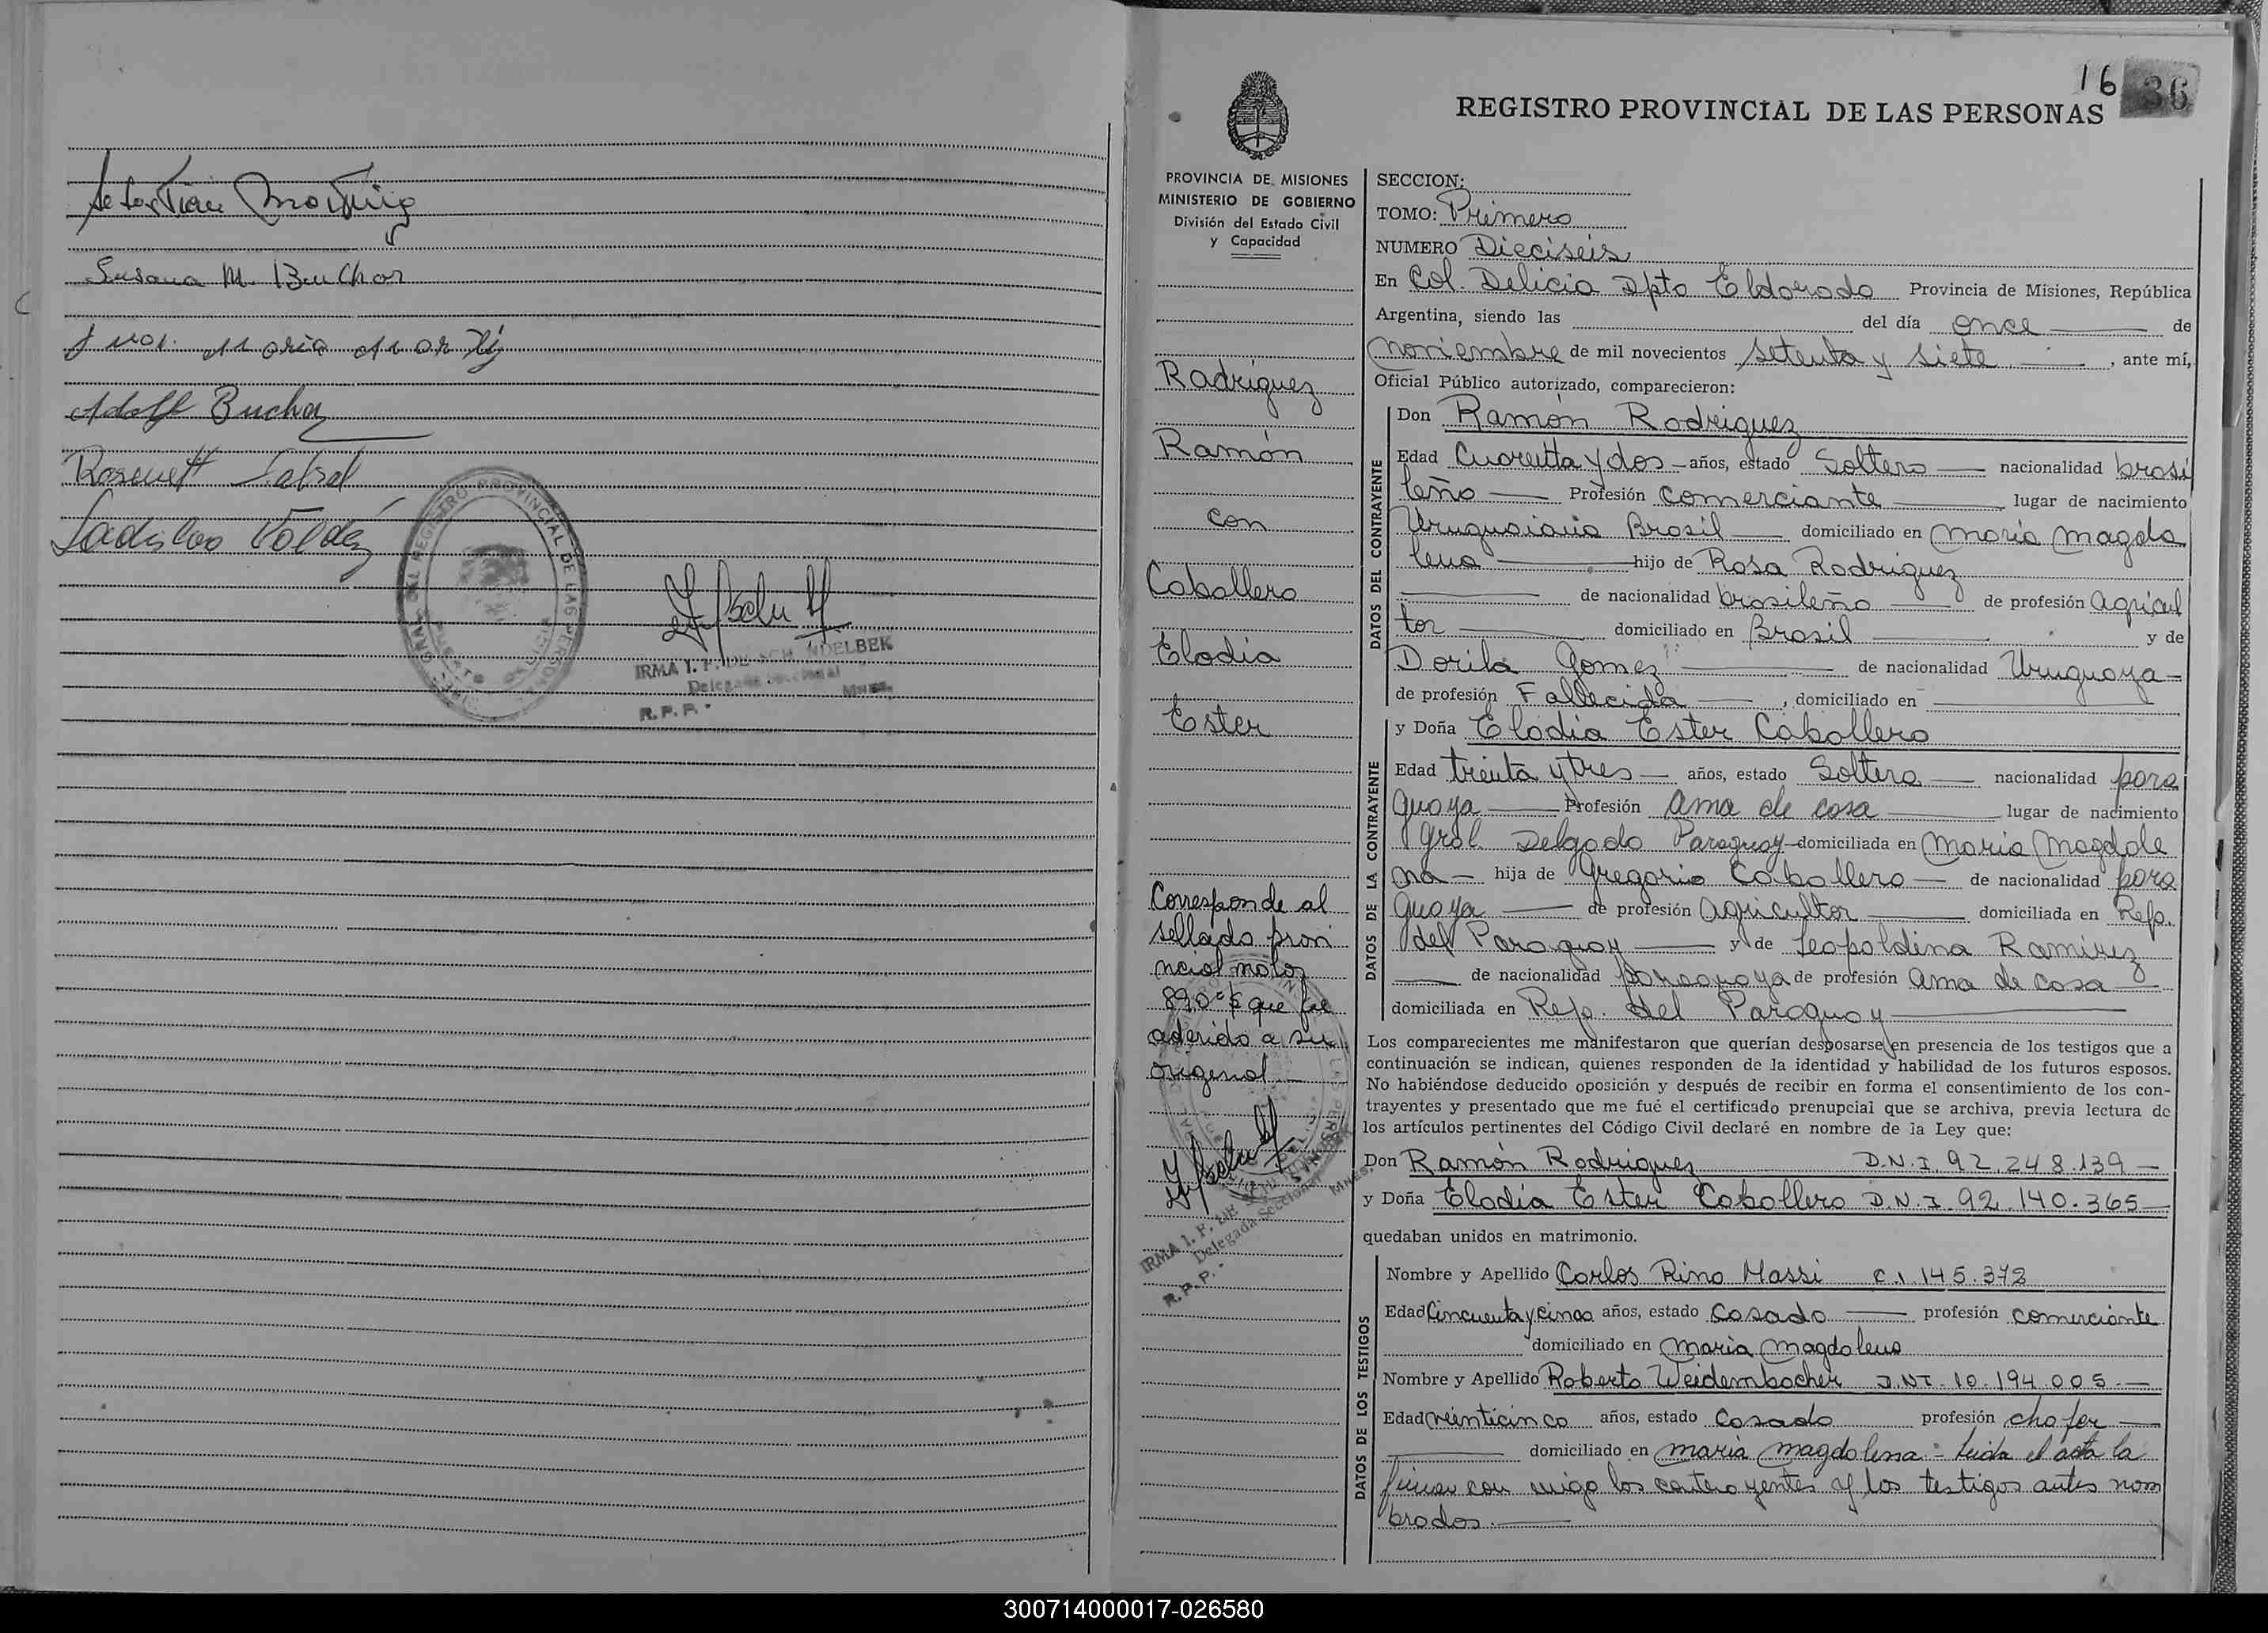 Susana M. Buchor
Juan Maria
Adolf Bucher
Ladislao Valdez
REGISTRO PROVINCIAL DE LAS PERSONAS
IRMA I. F. DE SCH NDELBEK
Delegada Seccional
Mnes.
R.P.P.
16
36
REGISTRO PROVINCIAL DE LAS PERSONAS
PROVINCIA DE MISIONES
MINISTERIO DE GOBIERNO
División del Estado Civil
y Capacidad
Rodríguez
Ramón
con
Caballero
Elodia
Ester
Corresponde al
sellado provin
ncial
890 $ que fue
aderido a su
original
IRMA I. F. DE SCH
Delegada Seccional Mnes.
R.P.P.
SECCION:
TOMO: Primero
NUMERO Dieciseis
En Col. Delicia Dpto Eldorado Provincia de Misiones, República
Argentina, siendo las del día once de
noviembre de mil novecientos setenta y siete, ante mí,
Oficial Público autorizado, comparecieron:
DATOS DEL CONTRAYENTE
Don Ramón Rodriguez
Edad Cuarenta y dos años, estado Soltero nacionalidad brasi
leño Profesión comerciante lugar de nacimiento
Uruguaiana Brasil domiciliado en María Magda
lena hijo de Rosa Rodriguez
de nacionalidad brasileño de profesión agricul
tor domiciliado en Brasil y de
Dorila Gomez de nacionalidad Uruguaya
de profesión Fallecida, domiciliado en
DATOS DE LA CONTRAYENTE
y Doña Elodia Ester Caballero
Edad treinta y tres años, estado Soltera nacionalidad para
guaya Profesión ama de casa lugar de nacimiento
Gral Delgado Paraguay domiciliada en María Magdale
na hija de Gregorio Caballero de nacionalidad para
guaya de profesión agricultor domiciliada en Rep.
del Paraguay y de Leopoldina Ramirez
de nacionalidad paraguaya de profesión ama de casa
domiciliada en Rep. del Paraguay
Los comparecientes me manifestaron que querían desposarse en presencia de los testigos que a
continuación se indican, quienes responden de la identidad y habilidad de los futuros esposos.
No habiéndose deducido oposición y después de recibir en forma el consentimiento de los con-
trayentes y presentado que me fué el certificado prenupcial que se archiva, previa lectura de
los artículos pertinentes del Código Civil declaré en nombre de la Ley que:
Don Ramón Rodriguez D.N.I. 92.248.139
y Doña Elodia Ester Caballero D.N.I. 92.140.365
quedaban unidos en matrimonio.
DATOS DE LOS TESTIGOS
Nombre y Apellido Carlos Rino Massi C.I. 145.372
Edad Cincuenta y cinco años, estado Casado profesión comerciante
domiciliado en María Magdalena
Nombre y Apellido Roberto Weidembacher D.N.I. 10.194.005.
Edad veinticinco años, estado Casado profesión chofer
domiciliado en maria magdalena - Leida el acta la
firman con migo los contrayentes y los testigos antes nom
brados.
300714000017-026580